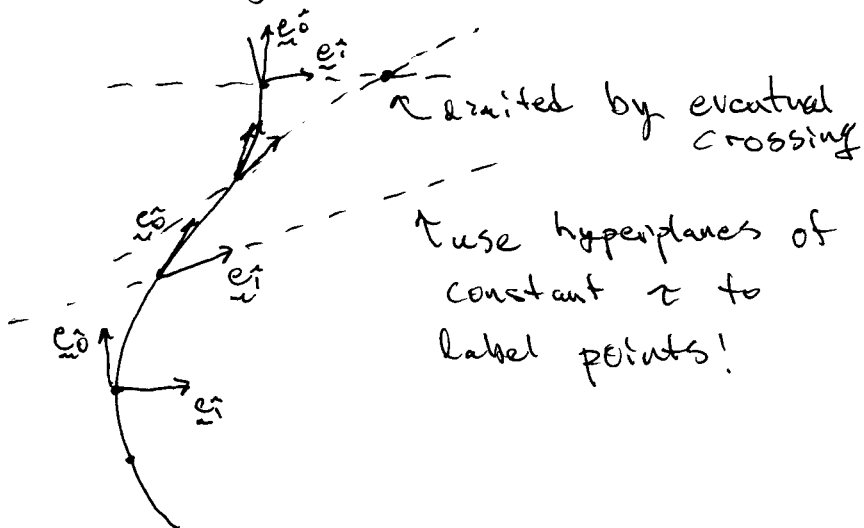 e₀̂
e₁̂
↖ limited by eventual
crossing
e₀̂
↑ use hyperplanes of
e₁̂
constant τ to
label points!
e₀̂
e₁̂